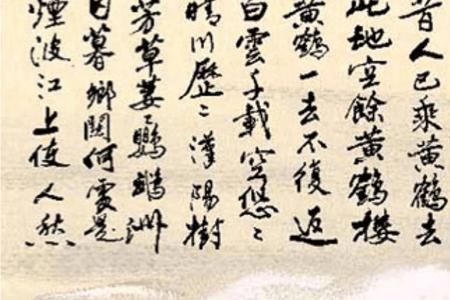 昔人已乘黄鹤去
此地空餘黄鹤樓
黄鹤一去不復返
白雲千載空悠〻
晴川歷〻漢陽樹
芳草萋〻鸚鵡洲
日暮鄉関何處是
煙波江上使人愁